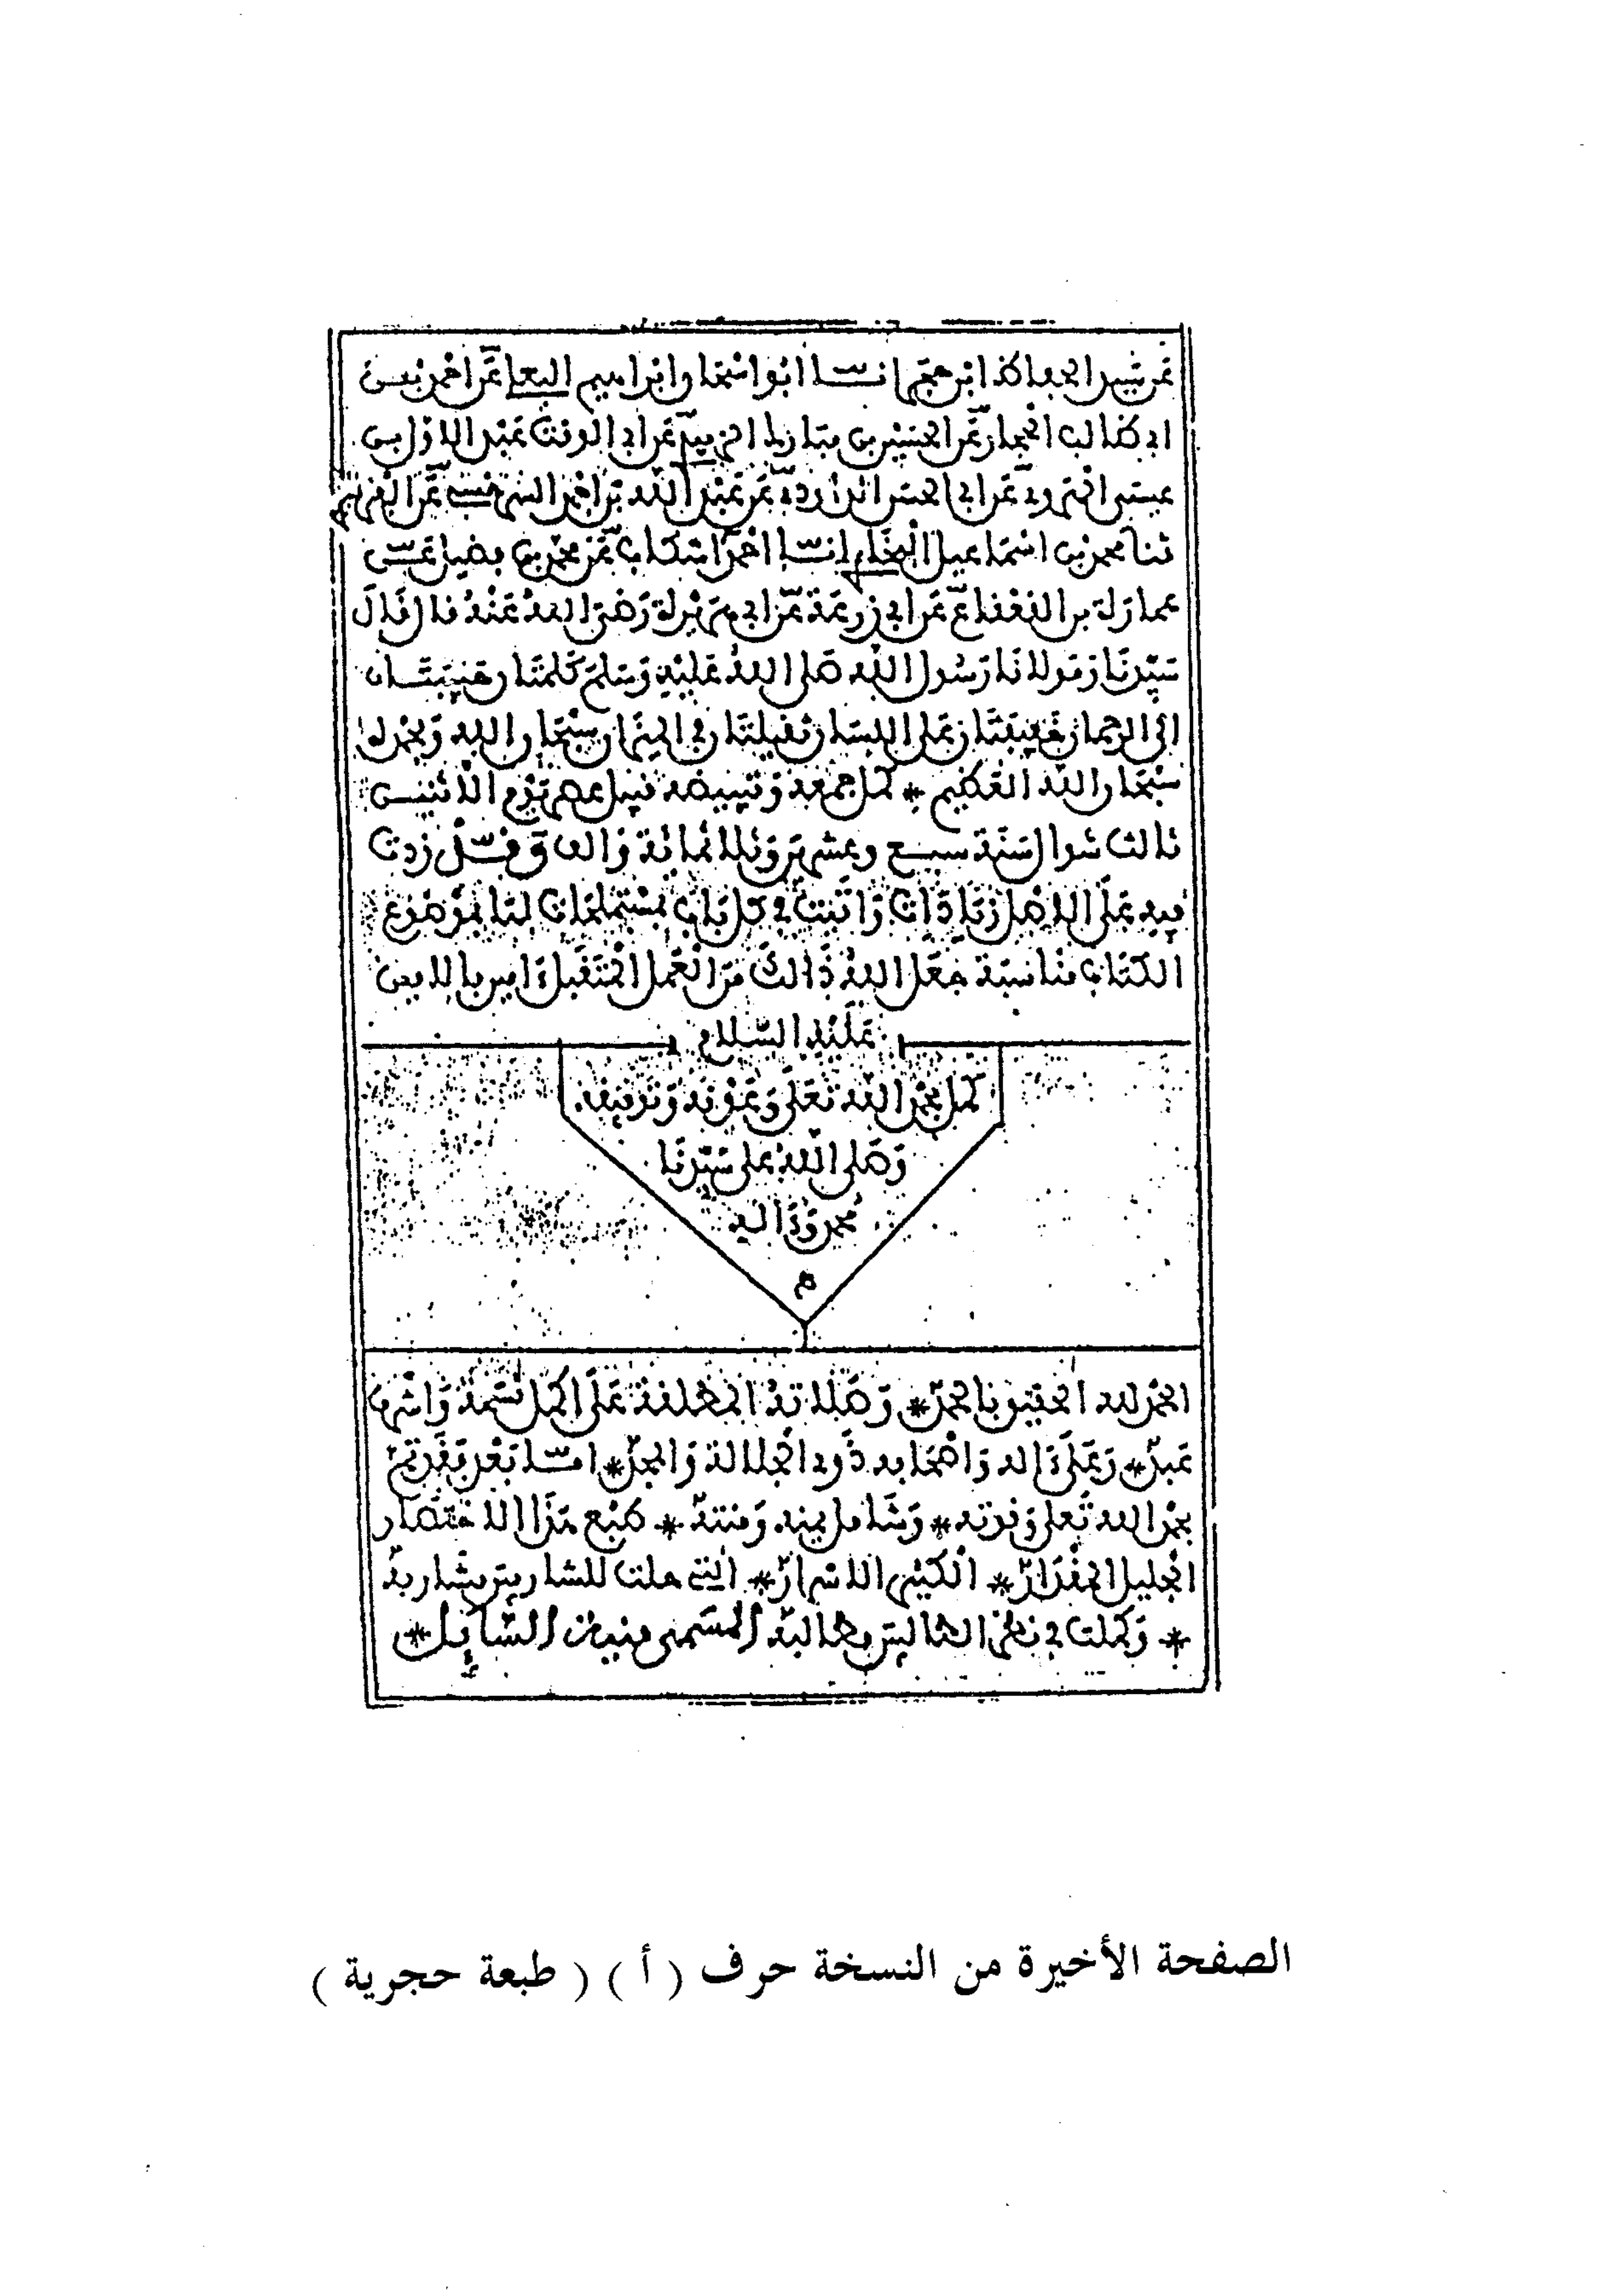 عن شيخه الحافظ ابن حجر انا ابو اسحاق ابراهيم البعلي عن احمد بن
ابي طالب الحجار عن الحسين بن مبارك الزبيدي عن ابي الوقت عبد الاول بن
عيسى الهروي عن ابي الحسن الداودي عن عبد الله بن احمد السرخسي عن الفربري
ثنا محمد بن اسماعيل البخاري انا احمد اشكاب عن محمد بن فضيل عن
عمارة بن القعقاع عن ابي زرعة عن ابي هريرة رضي الله عنه قال قال
سيدنا ومولانا رسول الله صلى الله عليه وسلم كلمتان حبيبتان
الى الرحمان خفيفتان على اللسان ثقيلتان في الميزان سبحان الله وبحمده
سبحان الله العظيم * كمل جمعه وتبييضه قبيل عصر يوم الاثنين
ثالث شوال سنة سبع وعشرين وثلاثمائة والف وقد زدت
فيه على الاصل زيادات واثبت في كل باب بمستملحات لها بموضوع
الكتاب مناسبة جعل الله ذالك من العمل المتقبل ءامين بالامين
عليه السلام
كمل بحمد الله تعلى وعونه وتوفيقه
وصلى الله على سيدنا
محمد وءاله
م
الحمد لله الحقيق بالحمد * وصلاته المطلقة على اكمل نسمة واشرف
عبد * وعلى ءاله واصحابه ذوي الجلالة والمجد * اما بعد فقد تم
بحمد الله تعلى وقوته * وشامل يمنه ومنته * طبع هذا الاختصار
الجليل المقدار * الكثير الاسرار * التي حلت للشاربين مشاربه
* وكملت في نظر الطالبين مطالبه المسمى منية السائل *
الصفحة الأخيرة من النسخة حرف ( أ ) ( طبعة حجرية )